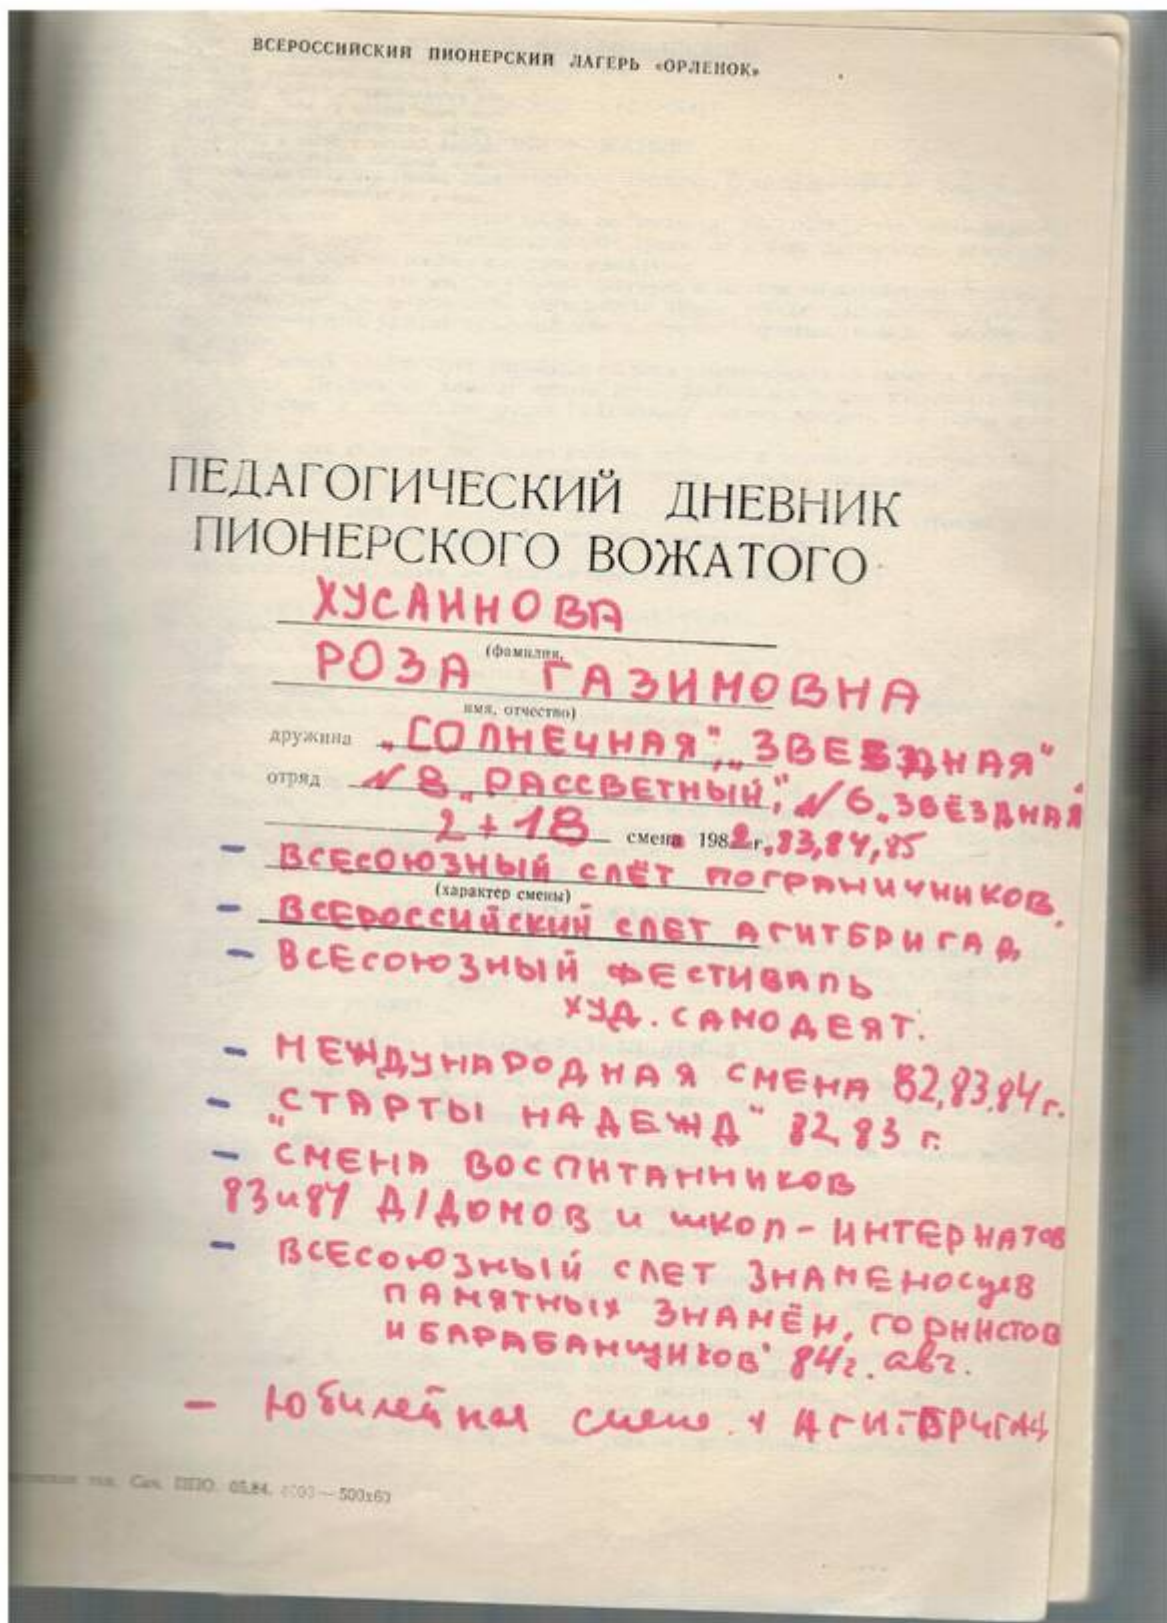 ВСЕРОССИЙСКИЙ ПИОНЕРСКИЙ ЛАГЕРЬ «ОРЛЕНОК»
ПЕДАГОГИЧЕСКИЙ ДНЕВНИК
ПИОНЕРСКОГО ВОЖАТОГО
ХУСАИНОВА
(фамилия,
РОЗА ГАЗИМОВНА
имя, отчество)
дружина „СОЛНЕЧНАЯ", „ЗВЕЗДНАЯ"
отряд N 8 „РАССВЕТНЫЙ", N 6 „ЗВЁЗДНАЯ
2 + 18 смена 1982 г, 83, 84, 85
- ВСЕСОЮЗНЫЙ СЛЁТ ПОГРАНИЧНИКОВ.
(характер смены)
- ВСЕРОССИЙСКИЙ СЛЕТ АГИТБРИГАД
- ВСЕСОЮЗНЫЙ ФЕСТИВАЛЬ
ХУД. САМОДЕЯТ.
- МЕЖДУНАРОДНАЯ СМЕНА 82, 83, 84 г.
- „СТАРТЫ НАДЕЖД" 82, 83 г.
- СМЕНА ВОСПИТАННИКОВ
83 и 84 Д/ДОМОВ и ШКОЛ-ИНТЕРНАТОВ
- ВСЕСОЮЗНЫЙ СЛЕТ ЗНАМЕНОСЦЕВ
ПАМЯТНЫХ ЗНАМЁН, ГОРНИСТОВ
И БАРАБАНЩИКОВ 84 г. авг.
- Юбилейная смена + АГИТБРИГАД
тип. Сач. ППО. 05.84. 500х60